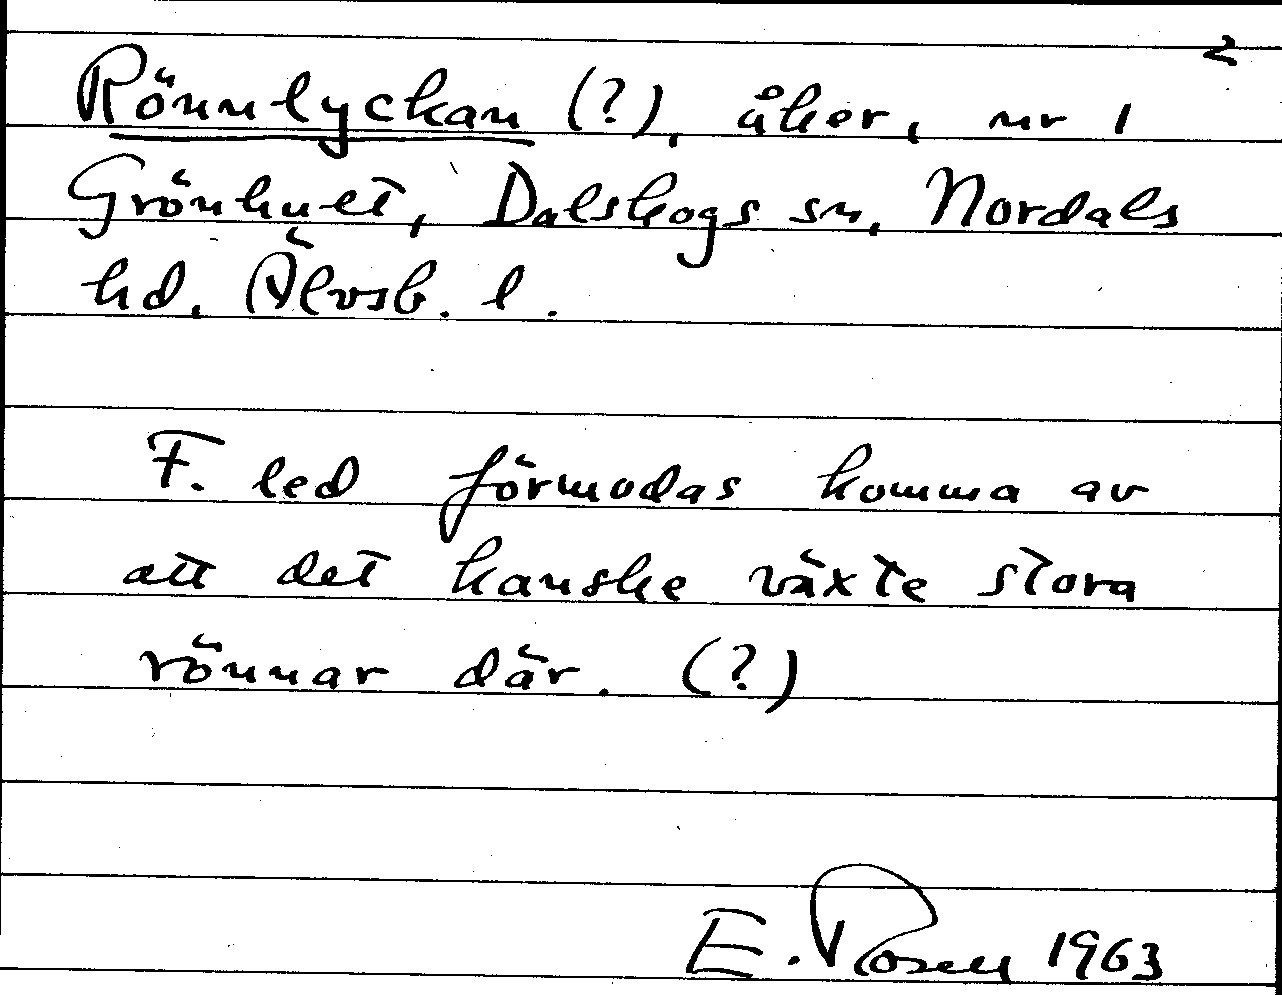 2
Rönnlyckan (?), åker, nr 1
Grönhult, Dalskogs sn, Nordals
hd. Älvsb. l.
F. led förmodas komma av
att det kanske växte stora
rönnar där. (?)
E. Rosen 1963